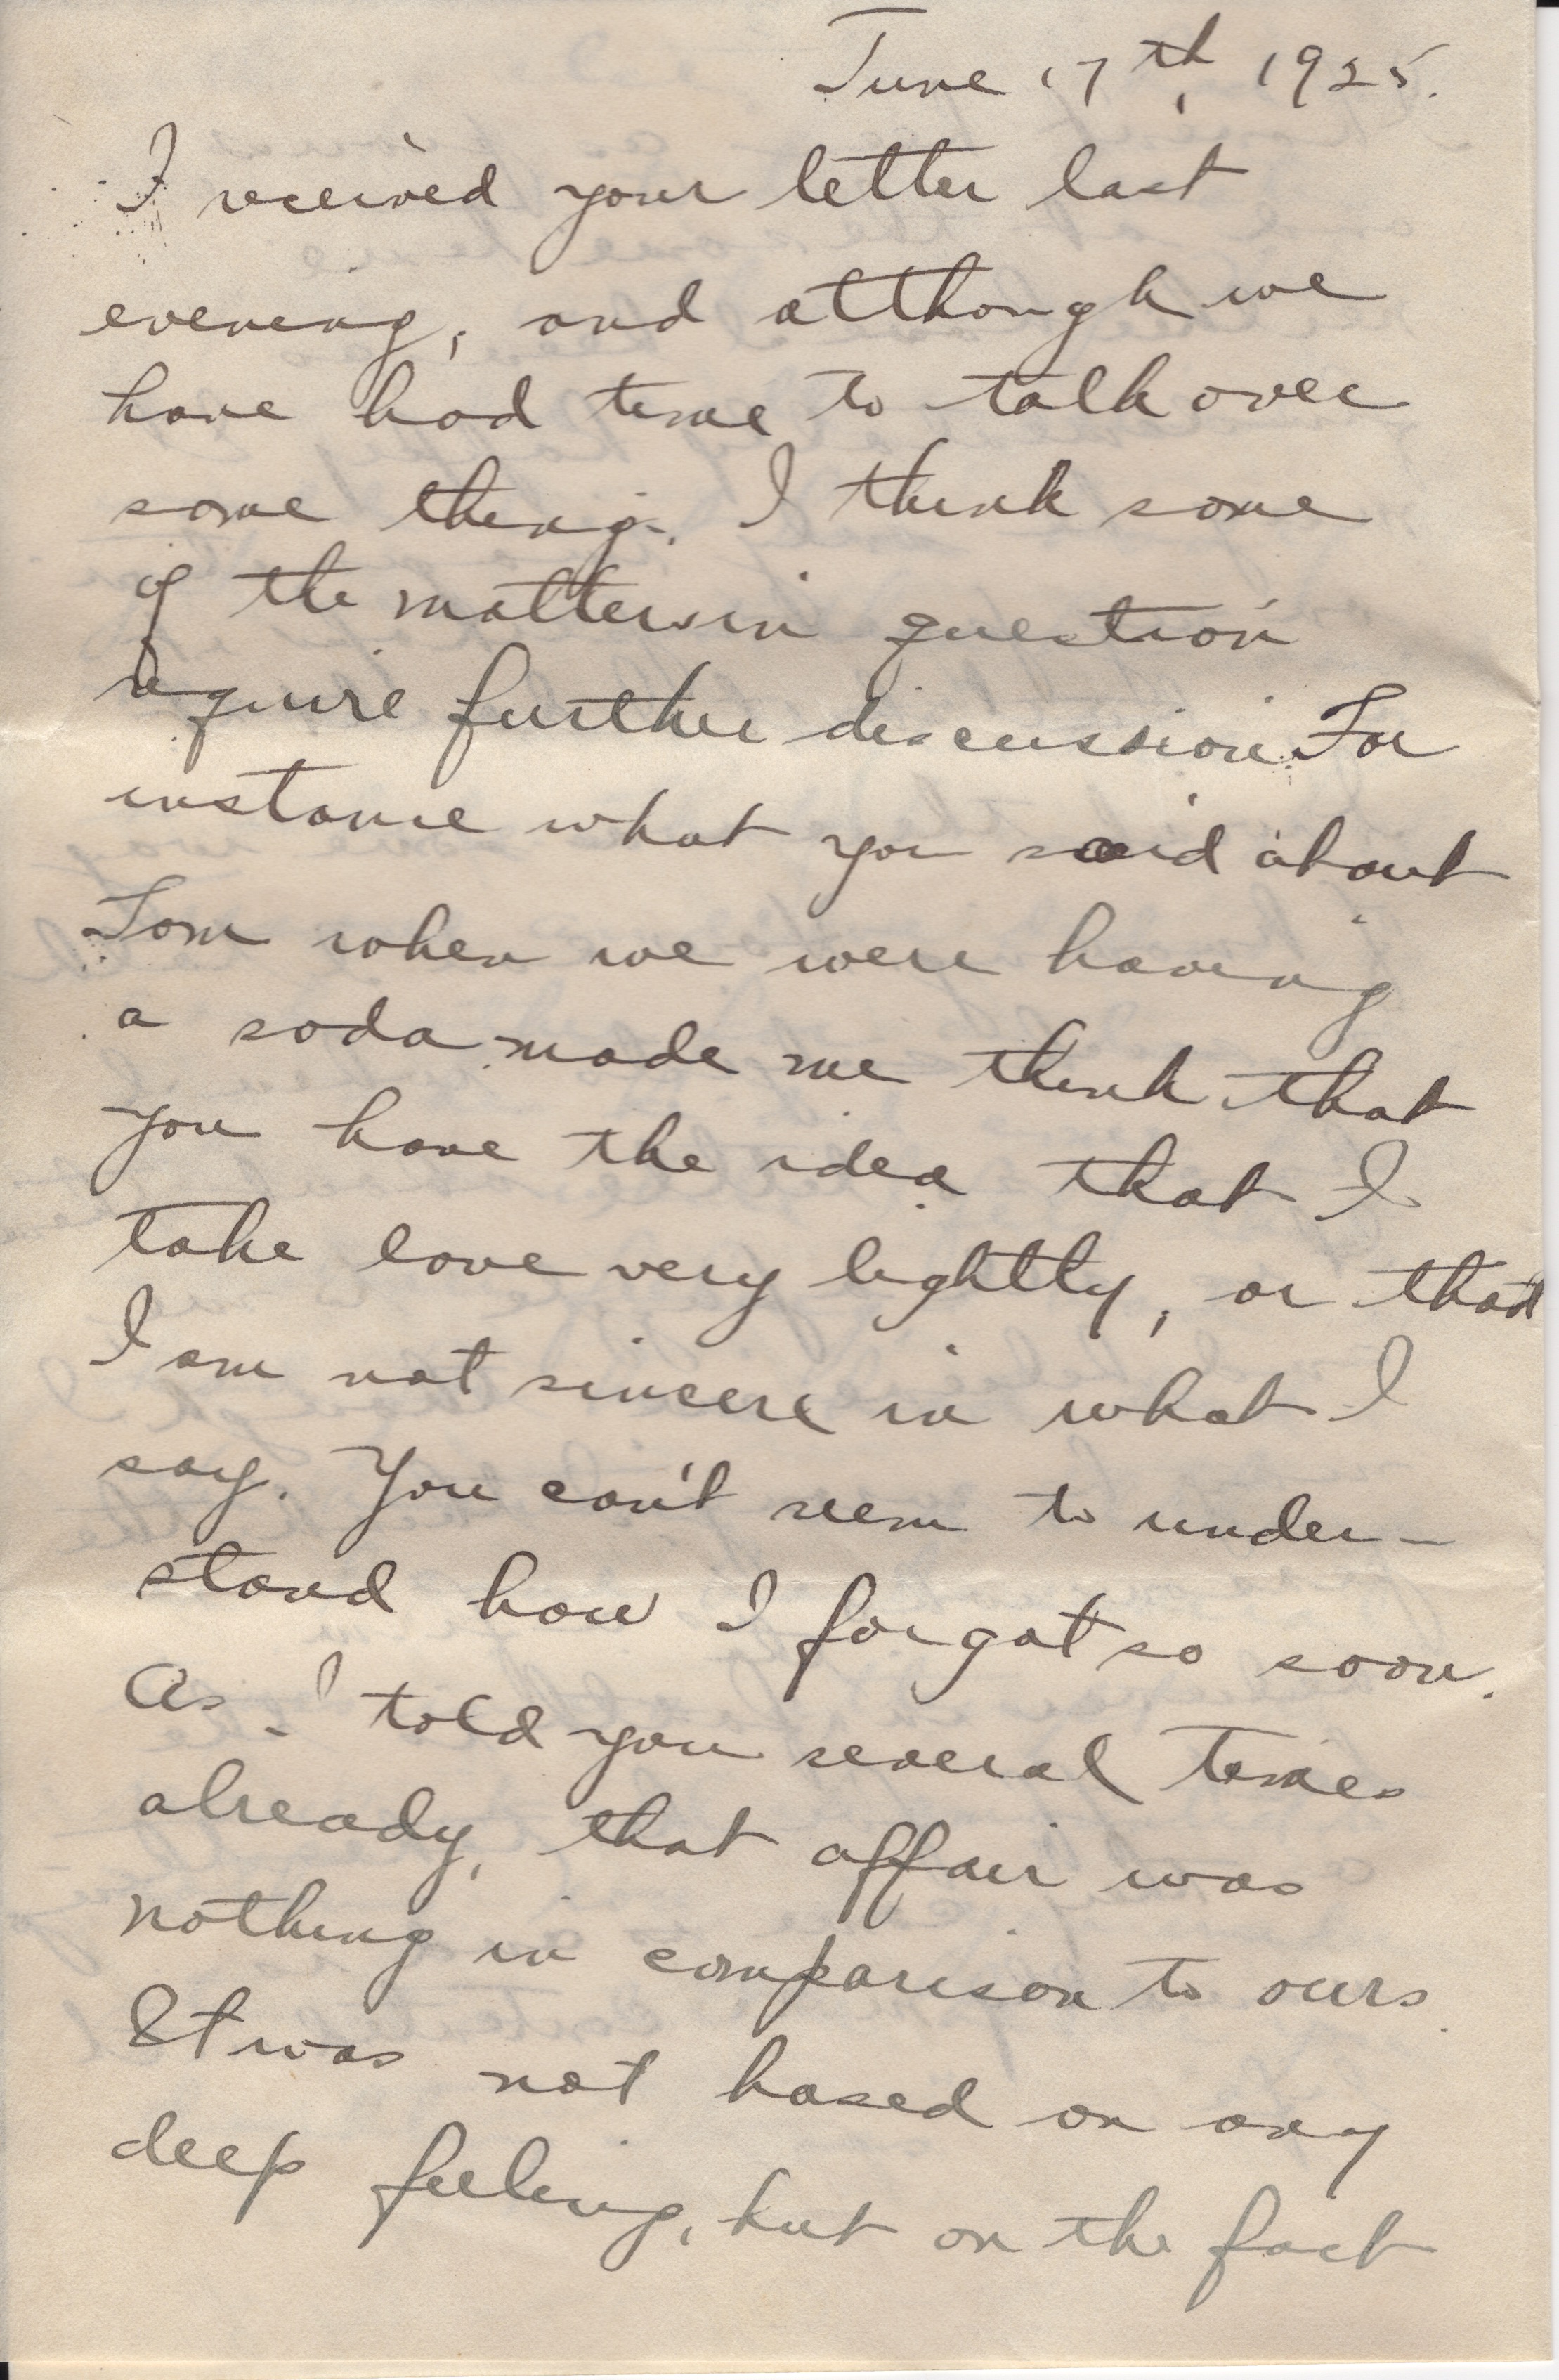 June 17th, 1925.
I received your letter last
evening, and although we
have had time to talk over
some things. I think some
of the matters in question
require further discussion. For
instance what you said about
Tom when we were having
a soda made me think that
you have the idea that I
take love very lightly, or that
I am not sincere in what I
say. You can't seem to under-
stand how I forgot so soon.
As I told you several times
already, that affair was
nothing in comparison to ours.
It was not based on any
deep feeling, but on the fact